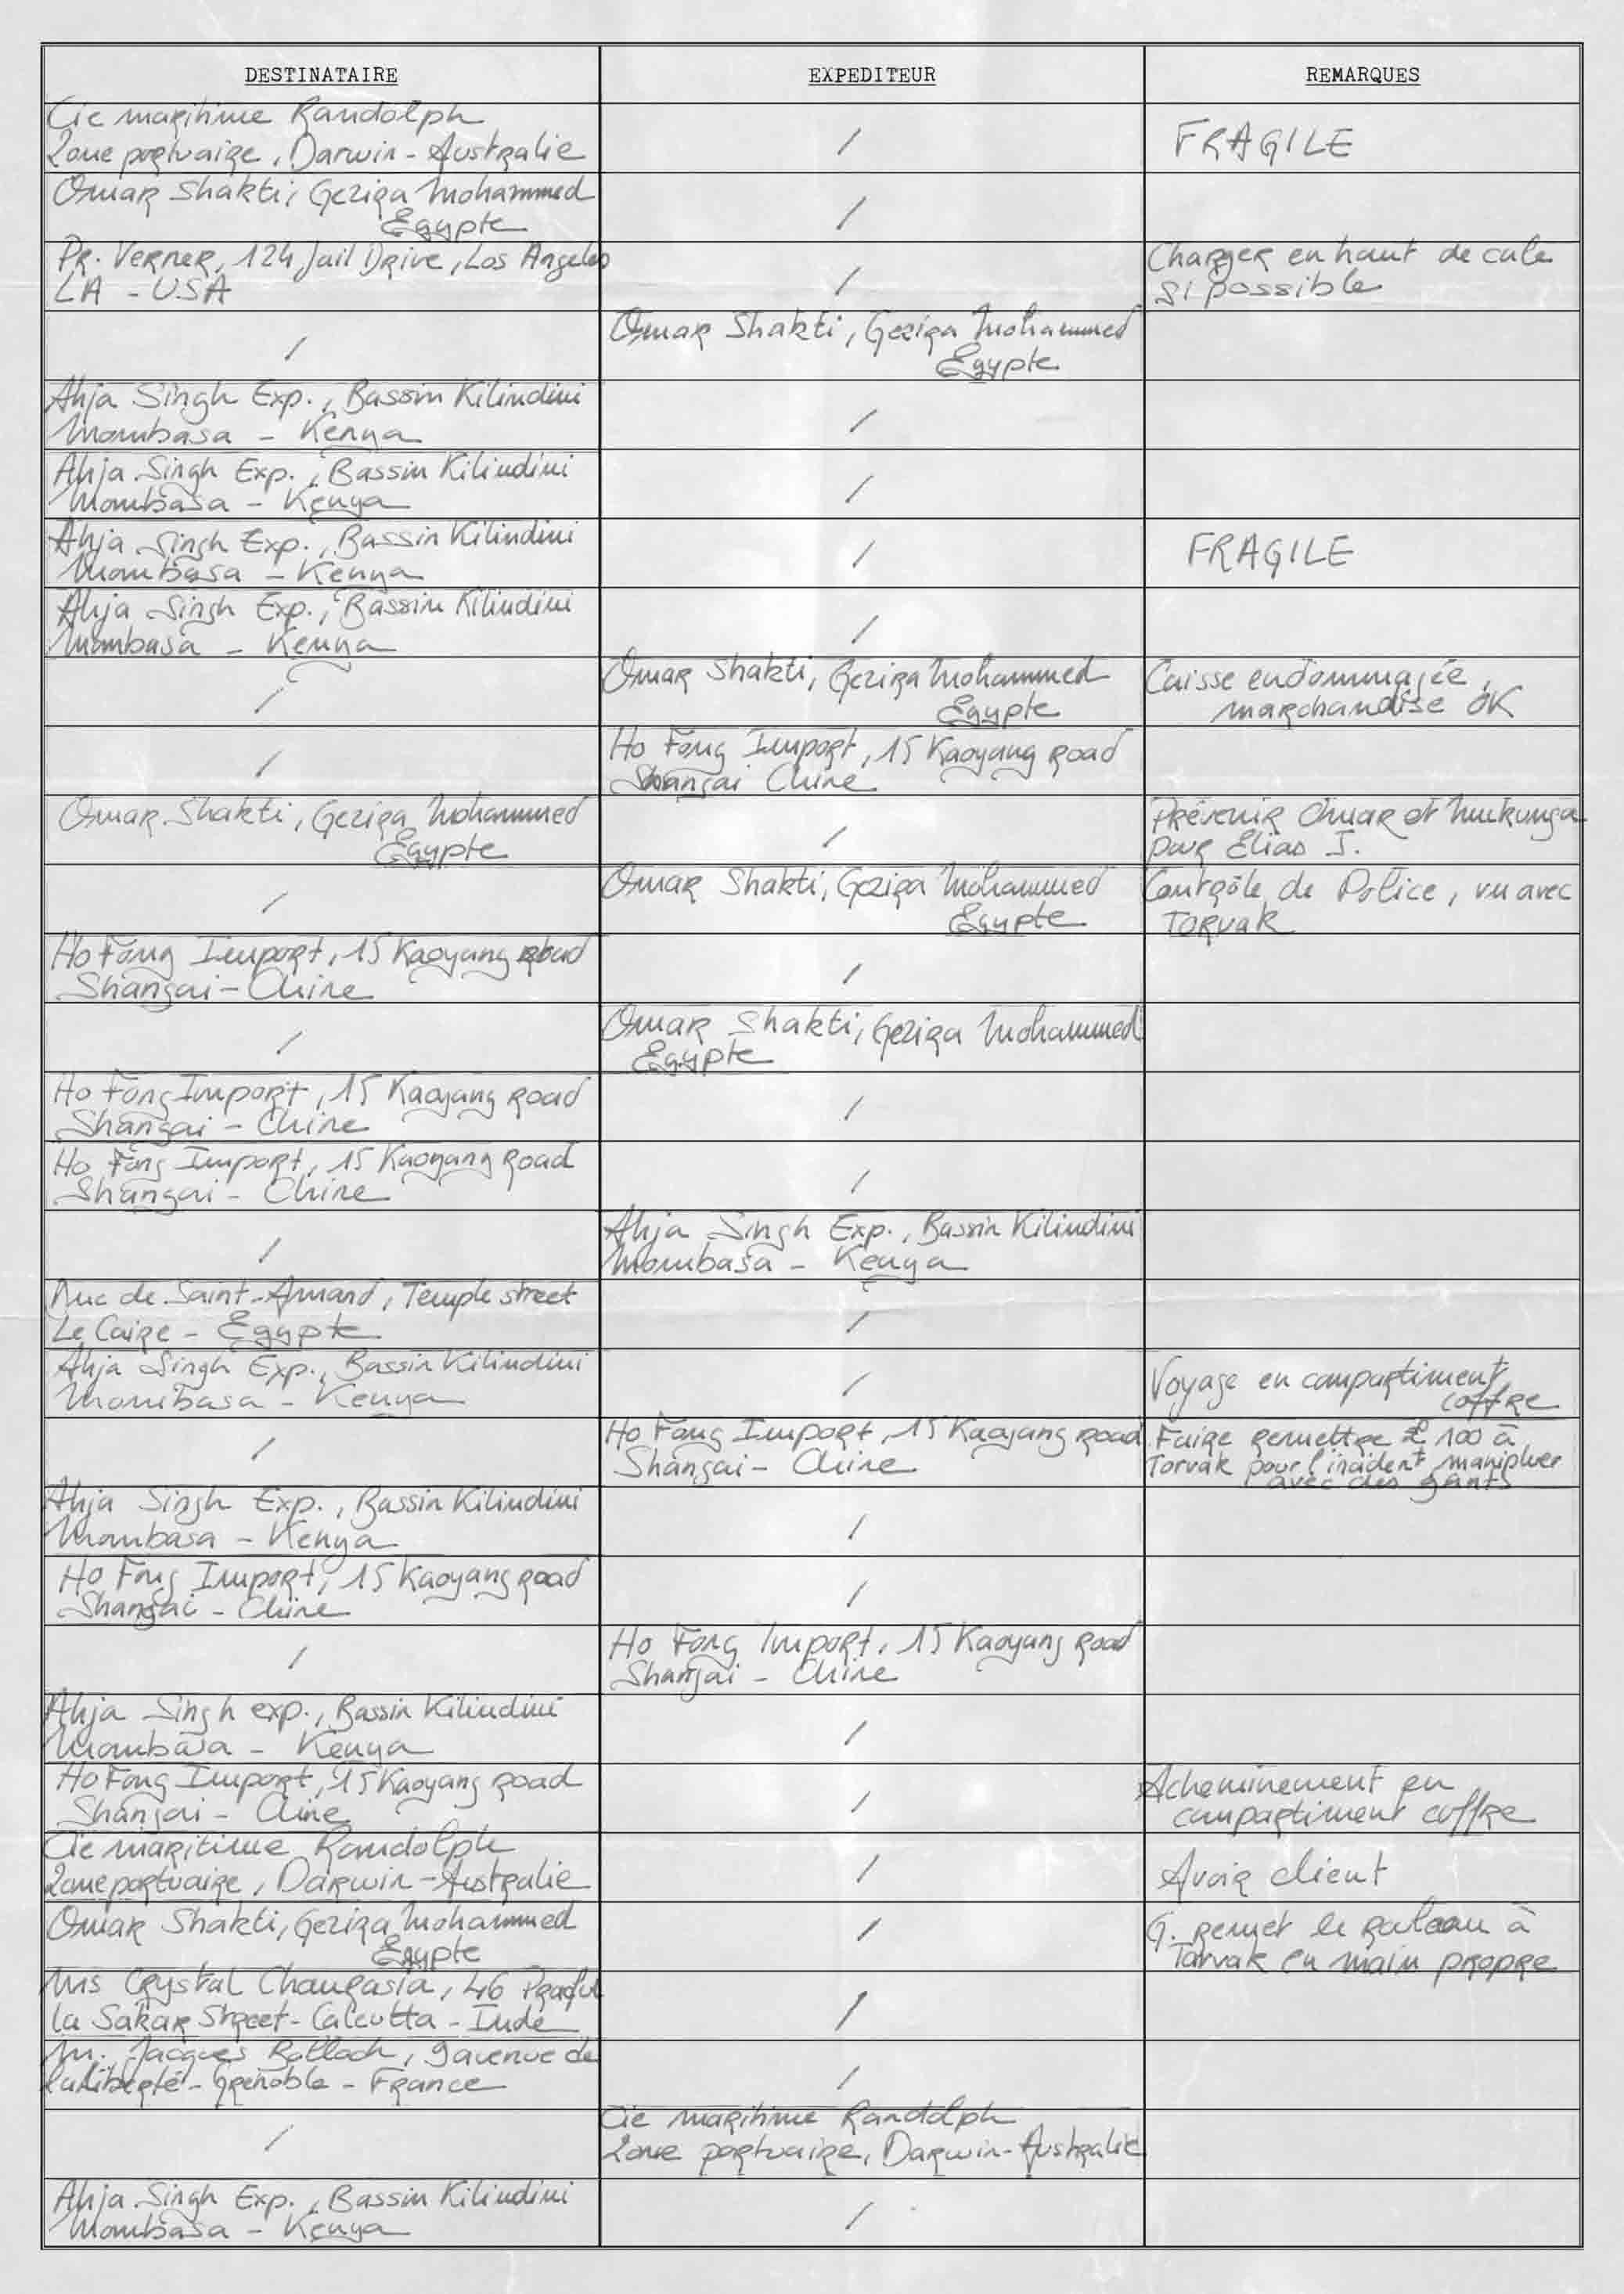 DESTINATAIRE EXPEDITEUR REMARQUES
Cie maritime Randolph
Zone portuaire, Darwin - Australie / FRAGILE
Omar Shakti, Gezira Mohammed
Egypte /
Pr. Verner, 124 Jail Drive, Los Angeles
LA - USA / Charger en haut de cale
si possible
/ Omar Shakti, Gezira Mohammed
Egypte
Ahja Singh Exp., Bassin Kilindini
Mombasa - Kenya /
Ahja Singh Exp., Bassin Kilindini
Mombasa - Kenya /
Ahja Singh Exp., Bassin Kilindini
Mombasa - Kenya / FRAGILE
Ahja Singh Exp., Bassin Kilindini
Mombasa - Kenya /
/ Omar Shakti, Gezira Mohammed
Egypte
Caisse endommagée,
marchandise OK
/ Ho Fong Import, 15 Kaoyang Road
Shangai Chine
Omar Shakti, Gezira Mohammed
Egypte /
Prévenir Omar et Mukunga
pour Elias J.
/ Omar Shakti, Gezira Mohammed
Egypte
Contrôle de Police, vu avec
Torvak
Ho Fong Import, 15 Kaoyang Road
Shangai - Chine /
/ Omar Shakti, Gezira Mohammed
Egypte
Ho Fong Import, 15 Kaoyang Road
Shangai - Chine /
Ho Fong Import, 15 Kaoyang Road
Shangai - Chine /
/ Ahja Singh Exp., Bassin Kilindini
Mombasa - Kenya
Rue de Saint-Amand, Temple street
Le Caire - Egypte /
Ahja Singh Exp., Bassin Kilindini
Mombasa - Kenya /
Voyage en compartiment
coffre
/ Ho Fong Import, 15 Kaoyang Road
Shangai - Chine
Faire remettre £ 100 à
Torvak pour l'incident, manipuler
avec des gants
Ahja Singh Exp., Bassin Kilindini
Mombasa - Kenya /
Ho Fong Import, 15 Kaoyang Road
Shangai - Chine /
/ Ho Fong Import, 15 Kaoyang Road
Shangai - Chine
Ahja Singh exp., Bassin Kilindini
Mombasa - Kenya /
Ho Fong Import, 15 Kaoyang Road
Shangai - Chine /
Acheminement en
compartiment coffre
Cie maritime Randolph
Zone portuaire, Darwin - Australie / Avoir client
Omar Shakti, Gezira Mohammed
Egypte /
G. remet le rouleau à
Torvak en main propre
Ms Crystal Chaurasia, 46 Praful
la Sakar Street - Calcutta - Inde /
M. Jacques Rolland, 9 avenue de
la Liberté - Grenoble - France /
/ Cie maritime Randolph
Zone portuaire, Darwin - Australie
Ahja Singh Exp., Bassin Kilindini
Mombasa - Kenya /